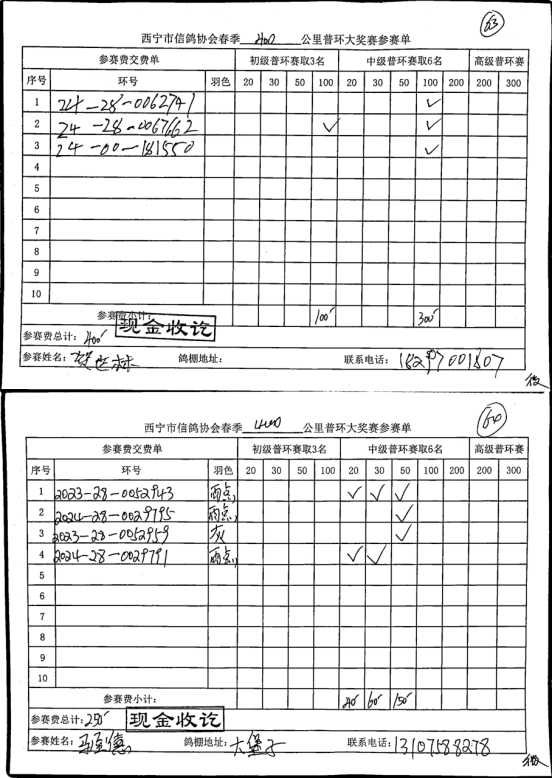 63
西宁市信鸽协会春季 400 公里普环大奖赛参赛单
参赛费交费单 初级普环赛取3名 中级普环赛取6名 高级普环赛
序号 环号 羽色 20 30 50 100 20 30 50 100 200 200 300
1 24-28-0062741 ✓
2 24-28-0067662 ✓ ✓
3 24-00-181550 ✓
4
5
6
7
8
9
10
参赛费小计: 100 300
现金收讫
参赛费总计: 400
参赛姓名: 林 鸽棚地址: 联系电话: 18297001807
微
西宁市信鸽协会春季 400 公里普环大奖赛参赛单
参赛费交费单 初级普环赛取3名 中级普环赛取6名 高级普环赛
序号 环号 羽色 20 30 50 100 20 30 50 100 200 200 300
1 2023-28-0052943 雨点 ✓ ✓ ✓
2 2024-28-0029795 雨点 ✓
3 2023-28-0052959 灰 ✓
4 2024-28-0029791 雨点 ✓ ✓
5
6
7
8
9
10
参赛费小计: 40 60 150
参赛费总计: 250 现金收讫
参赛姓名: 马 德 鸽棚地址: 大堡子 联系电话: 13107588278
微